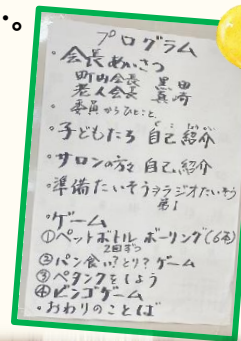 プログラム
・会長あいさつ
町内会長 黒田
老人会長 真崎
・委員からひとこと
・子どもたち 自己紹介
・サロンの方々 自己紹介
・準備たいそう ラジオたいそう
第1
・ゲーム
①ペットボトル ボーリング(6本)
2回ずつ
②パン食い?とり?ゲーム
③ペタンクをしよう
④ビンゴゲーム
・おわりのことば